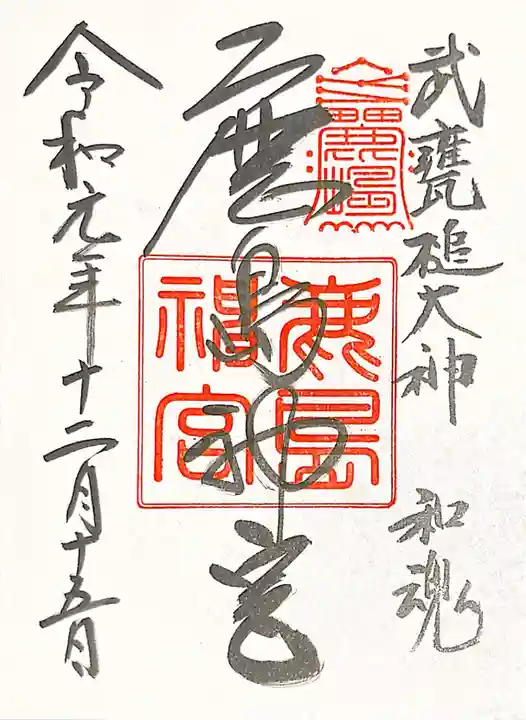 武甕槌大神 和魂
鹿嶋
鹿島神宮
鹿島神宮
令和元年十二月十五日